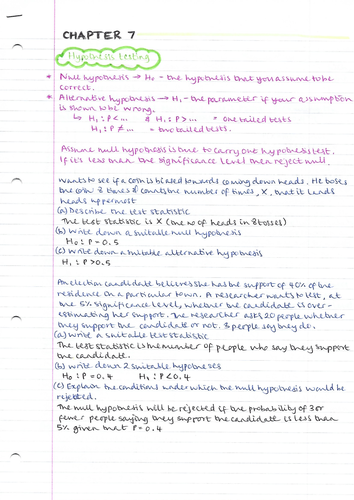 CHAPTER 7
Hypothesis testing
* Null hypothesis → H₀ - the hypothesis that you assume to be
correct.
* Alternative hypothesis → H₁ - the parameter if your assumption
is shown to be wrong.
↳ H₁: P < ... & H₁: P > ... = one tailed tests
H₁: P ≠ ... = two tailed tests.
Assume null hypothesis is true to carry one hypothesis test.
If it's less than the significance level then reject null.
Wants to see if a coin is biased towards coming down heads. He tosses
the coin 8 times & counts the number of times, X, that it lands
heads uppermost
(a) Describe the test statistic
The test statistic is X (the no of heads in 8 tosses)
(b) Write down a suitable null hypothesis
H₀: P = 0.5
(c) Write down a suitable alternative hypothesis
H₁: P > 0.5
An election candidate believes she has the support of 40% of the
residence on a particular town. A researcher wants to test, at
the 5% significance level, whether the candidate is over-
estimating her support. The researcher asks 20 people whether
they support the candidate or not. 3 people say they do.
(a) Write a suitable test statistic
The test statistic is the number of people who say they support
the candidate.
(b) write down 2 suitable hypotheses
H₀: P = 0.4 H₁: P < 0.4
(c) Explain the conditions under which the null hypothesis would be
rejected.
The null hypothesis will be rejected if the probability of 3 or
fewer people saying they support the candidate is less than
5% given that P = 0.4